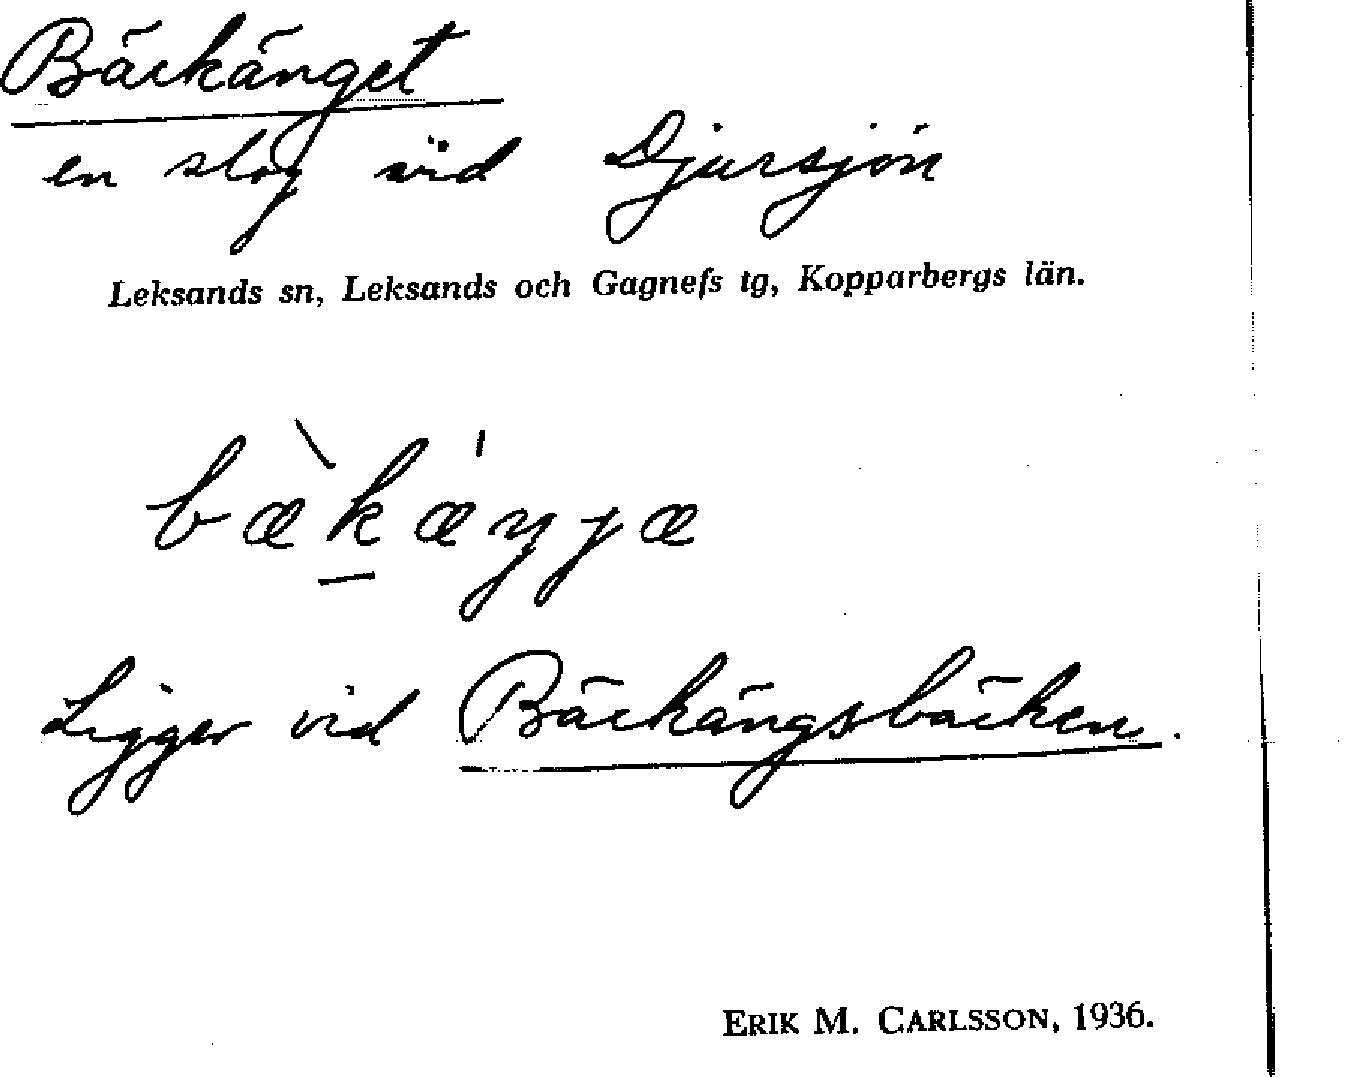 Bäckänget
en slog vid Djursjön
Leksands sn, Leksands och Gagnefs tg, Kopparbergs län.
bæ̀kǽŋjæ
Ligger vid Bäckängsbäcken.
ERIK M. CARLSSON, 1936.